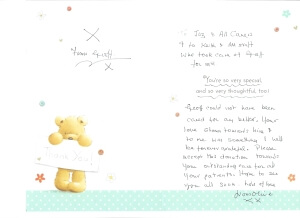 X
X
To Jaz & All Carers
& to & All staff
who took care of Geoff
for me
You're so very special
and so very thoughtful too!
Geoff could not have been
cared for any better. Your
love shown towards him &
to me was something I will
be forever grateful. Please
accept this donation towards
your outstanding care of all
your patients. Hope to see
you all soon
Thank You